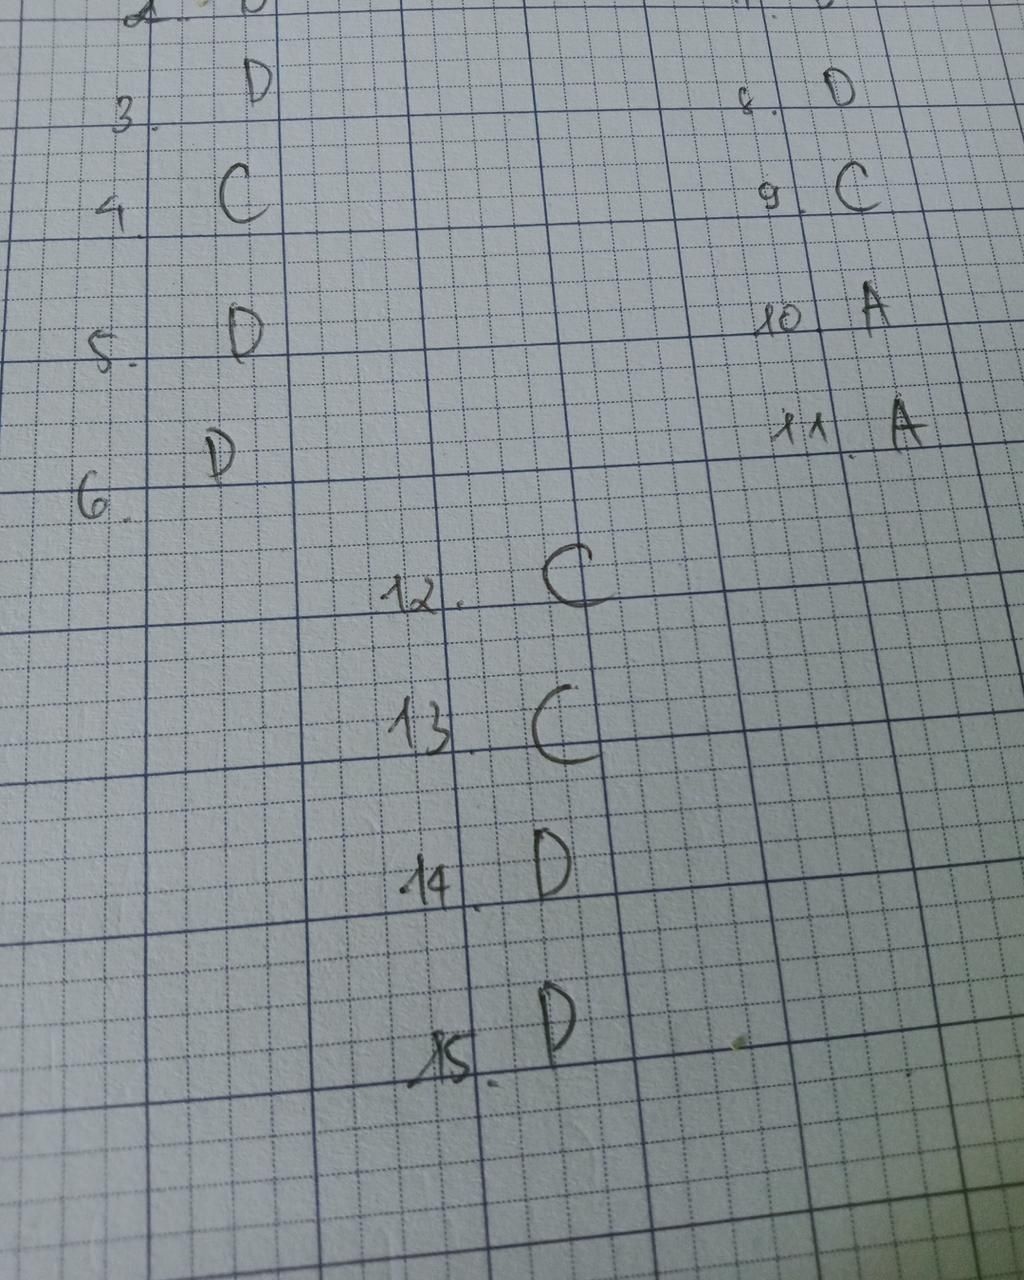 3. D
4. C
5. D
6. D
8. D
9. C
10 A
11. A
12. C
13. C
14. D
15. D